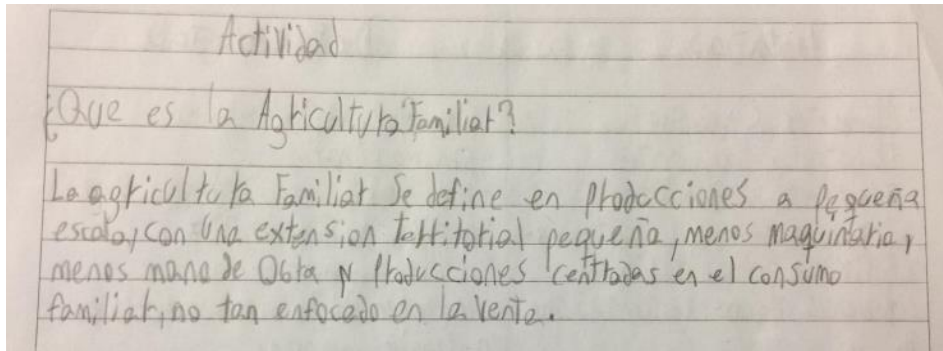 Actividad
¿Que es la Agricultura Familiar?
La agricultura Familiar Se define en Producciones a Pequeña
escala, con Una extension territorial pequeña, menos maquinaria,
menos mano de Obra y Producciones centradas en el consumo
familiar, no tan enfocado en la venta.